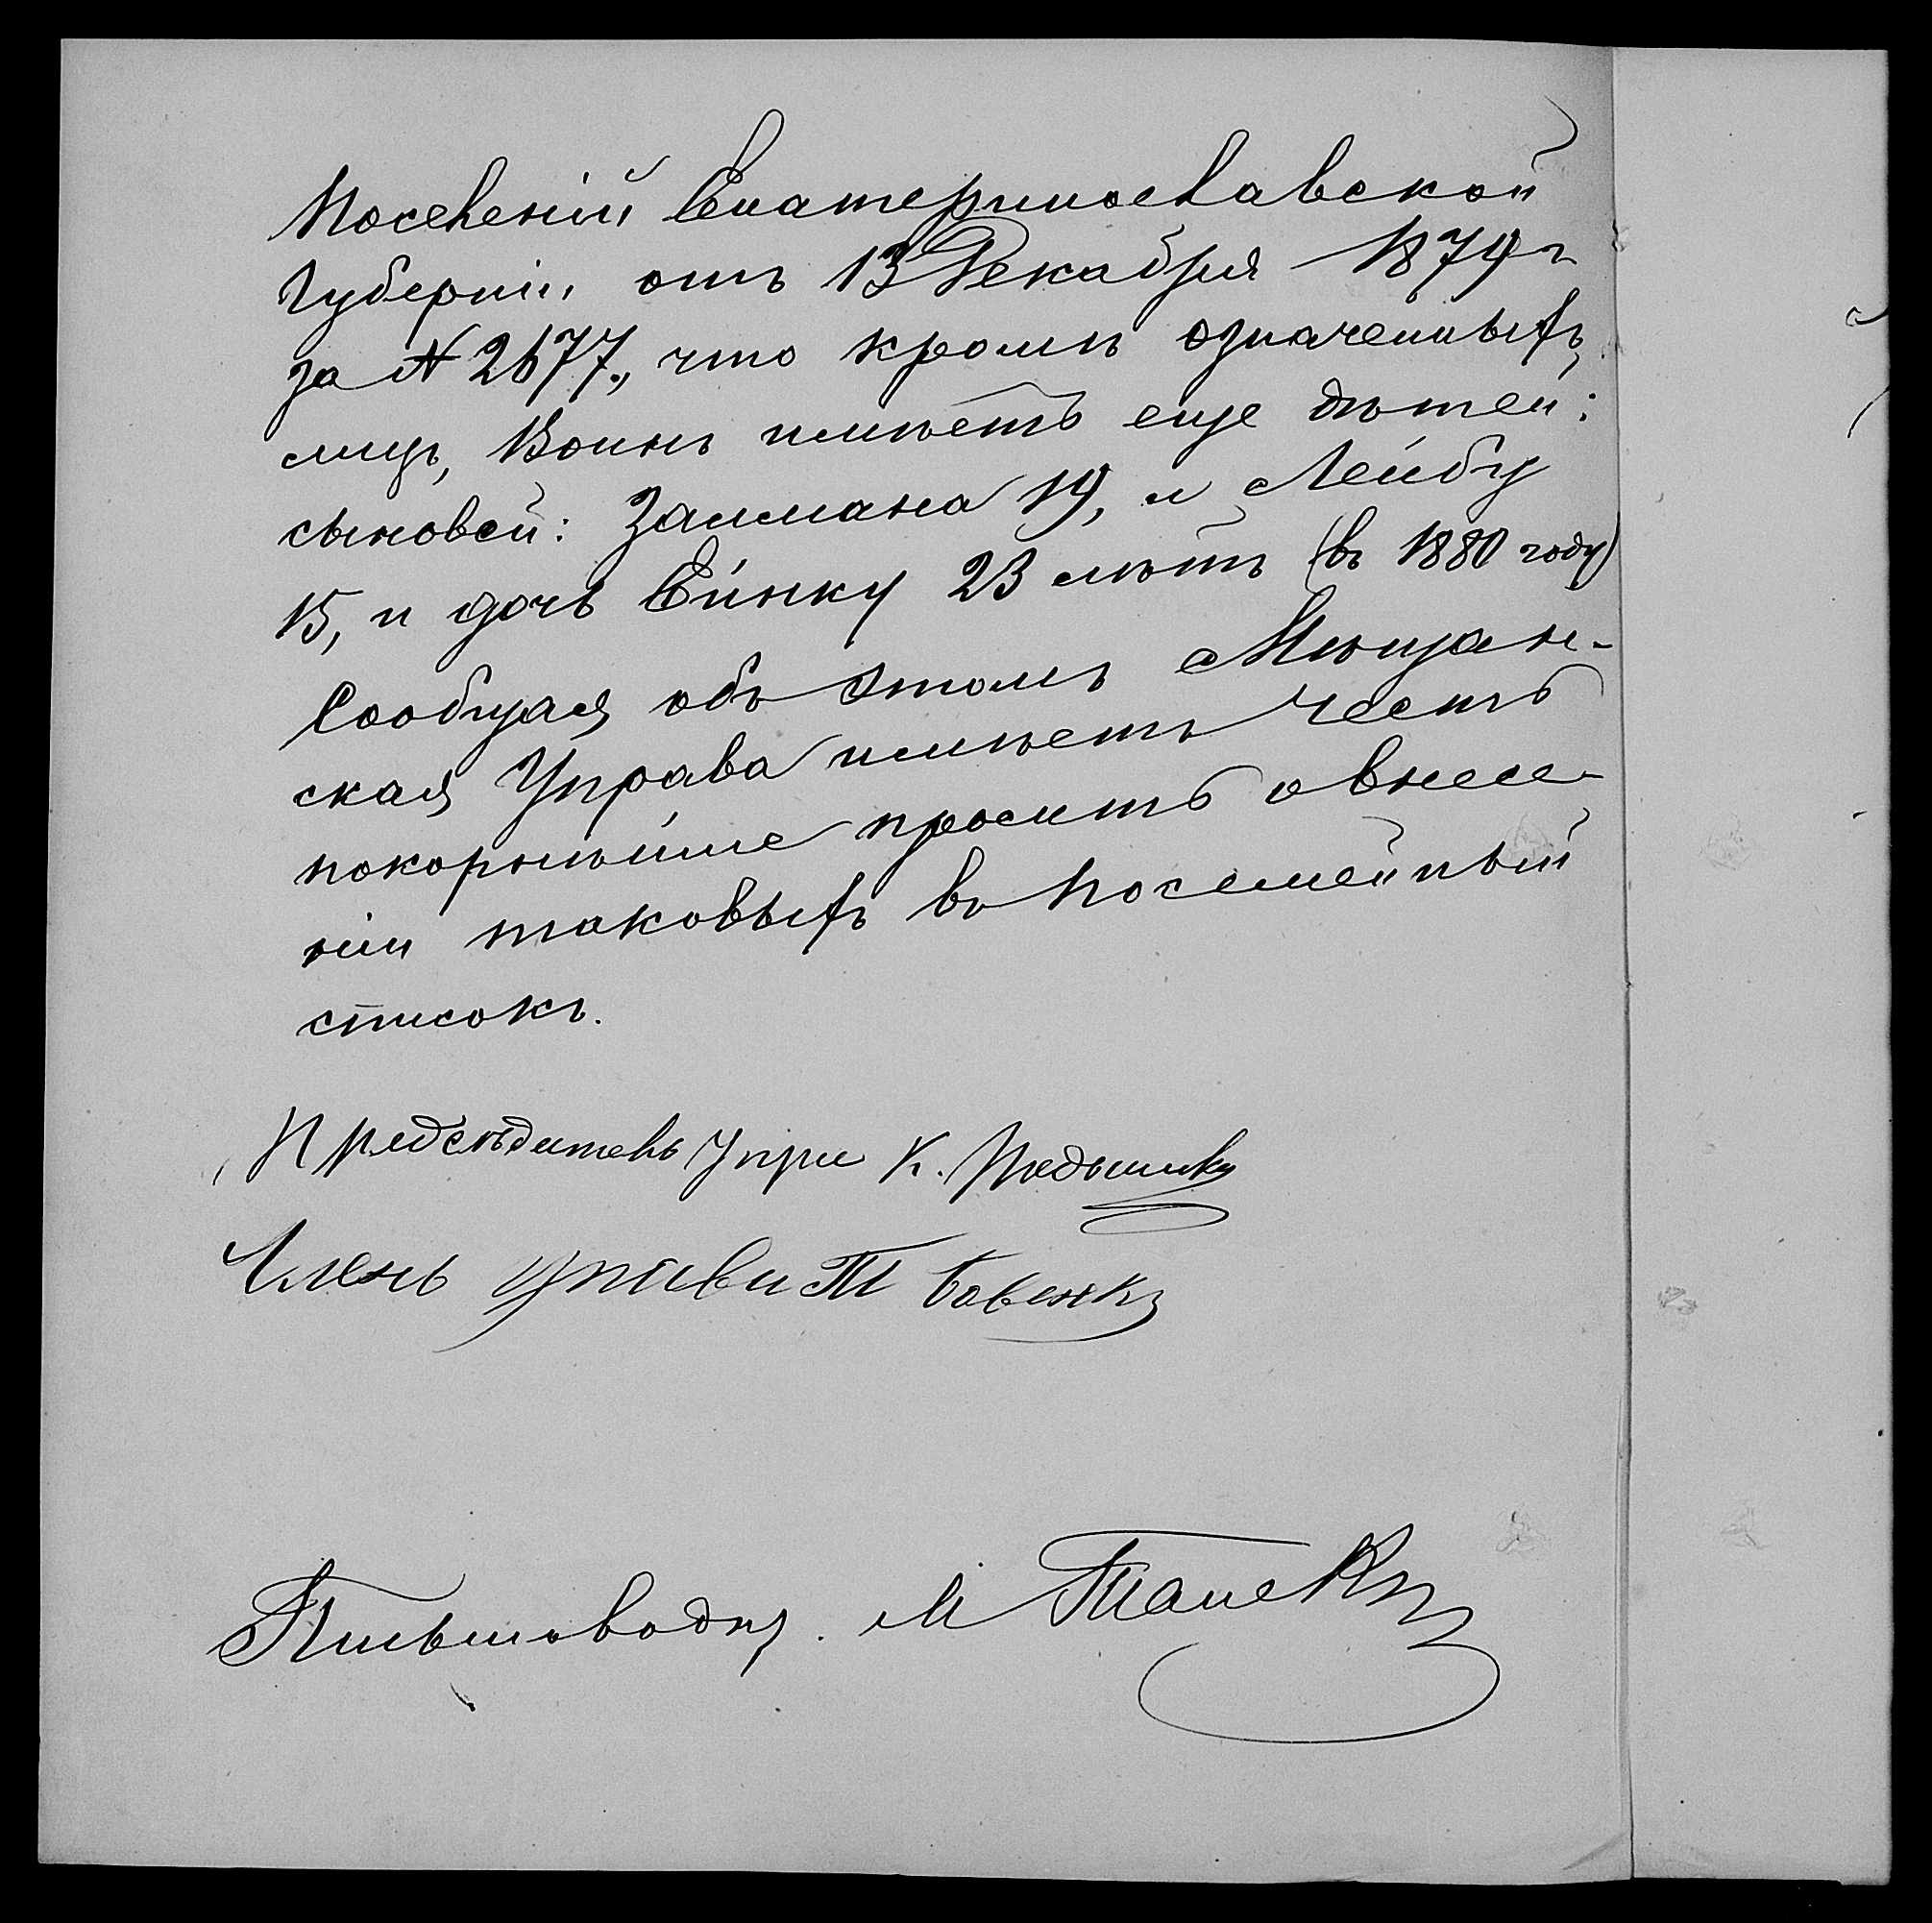 Поселеній Екатеринославской
Губерніи отъ 13 Декабря 1879 г
за № 2677., что кромѣ означенныхъ
лицъ, Воинъ имѣетъ еще дѣтей:
сыновей: Залмана 19, и Лейбу
15, и дочь Ейнку 23 лѣтъ (въ 1880 году)
Сообщая объ этомъ Мѣщан-
ская Управа имѣетъ честь
покорнѣйше просить о внесе-
ніи таковыхъ въ посемейный
списокъ.
Предсѣдатель Упра К.
Членъ управи П Бабенко
Письмоводи. М